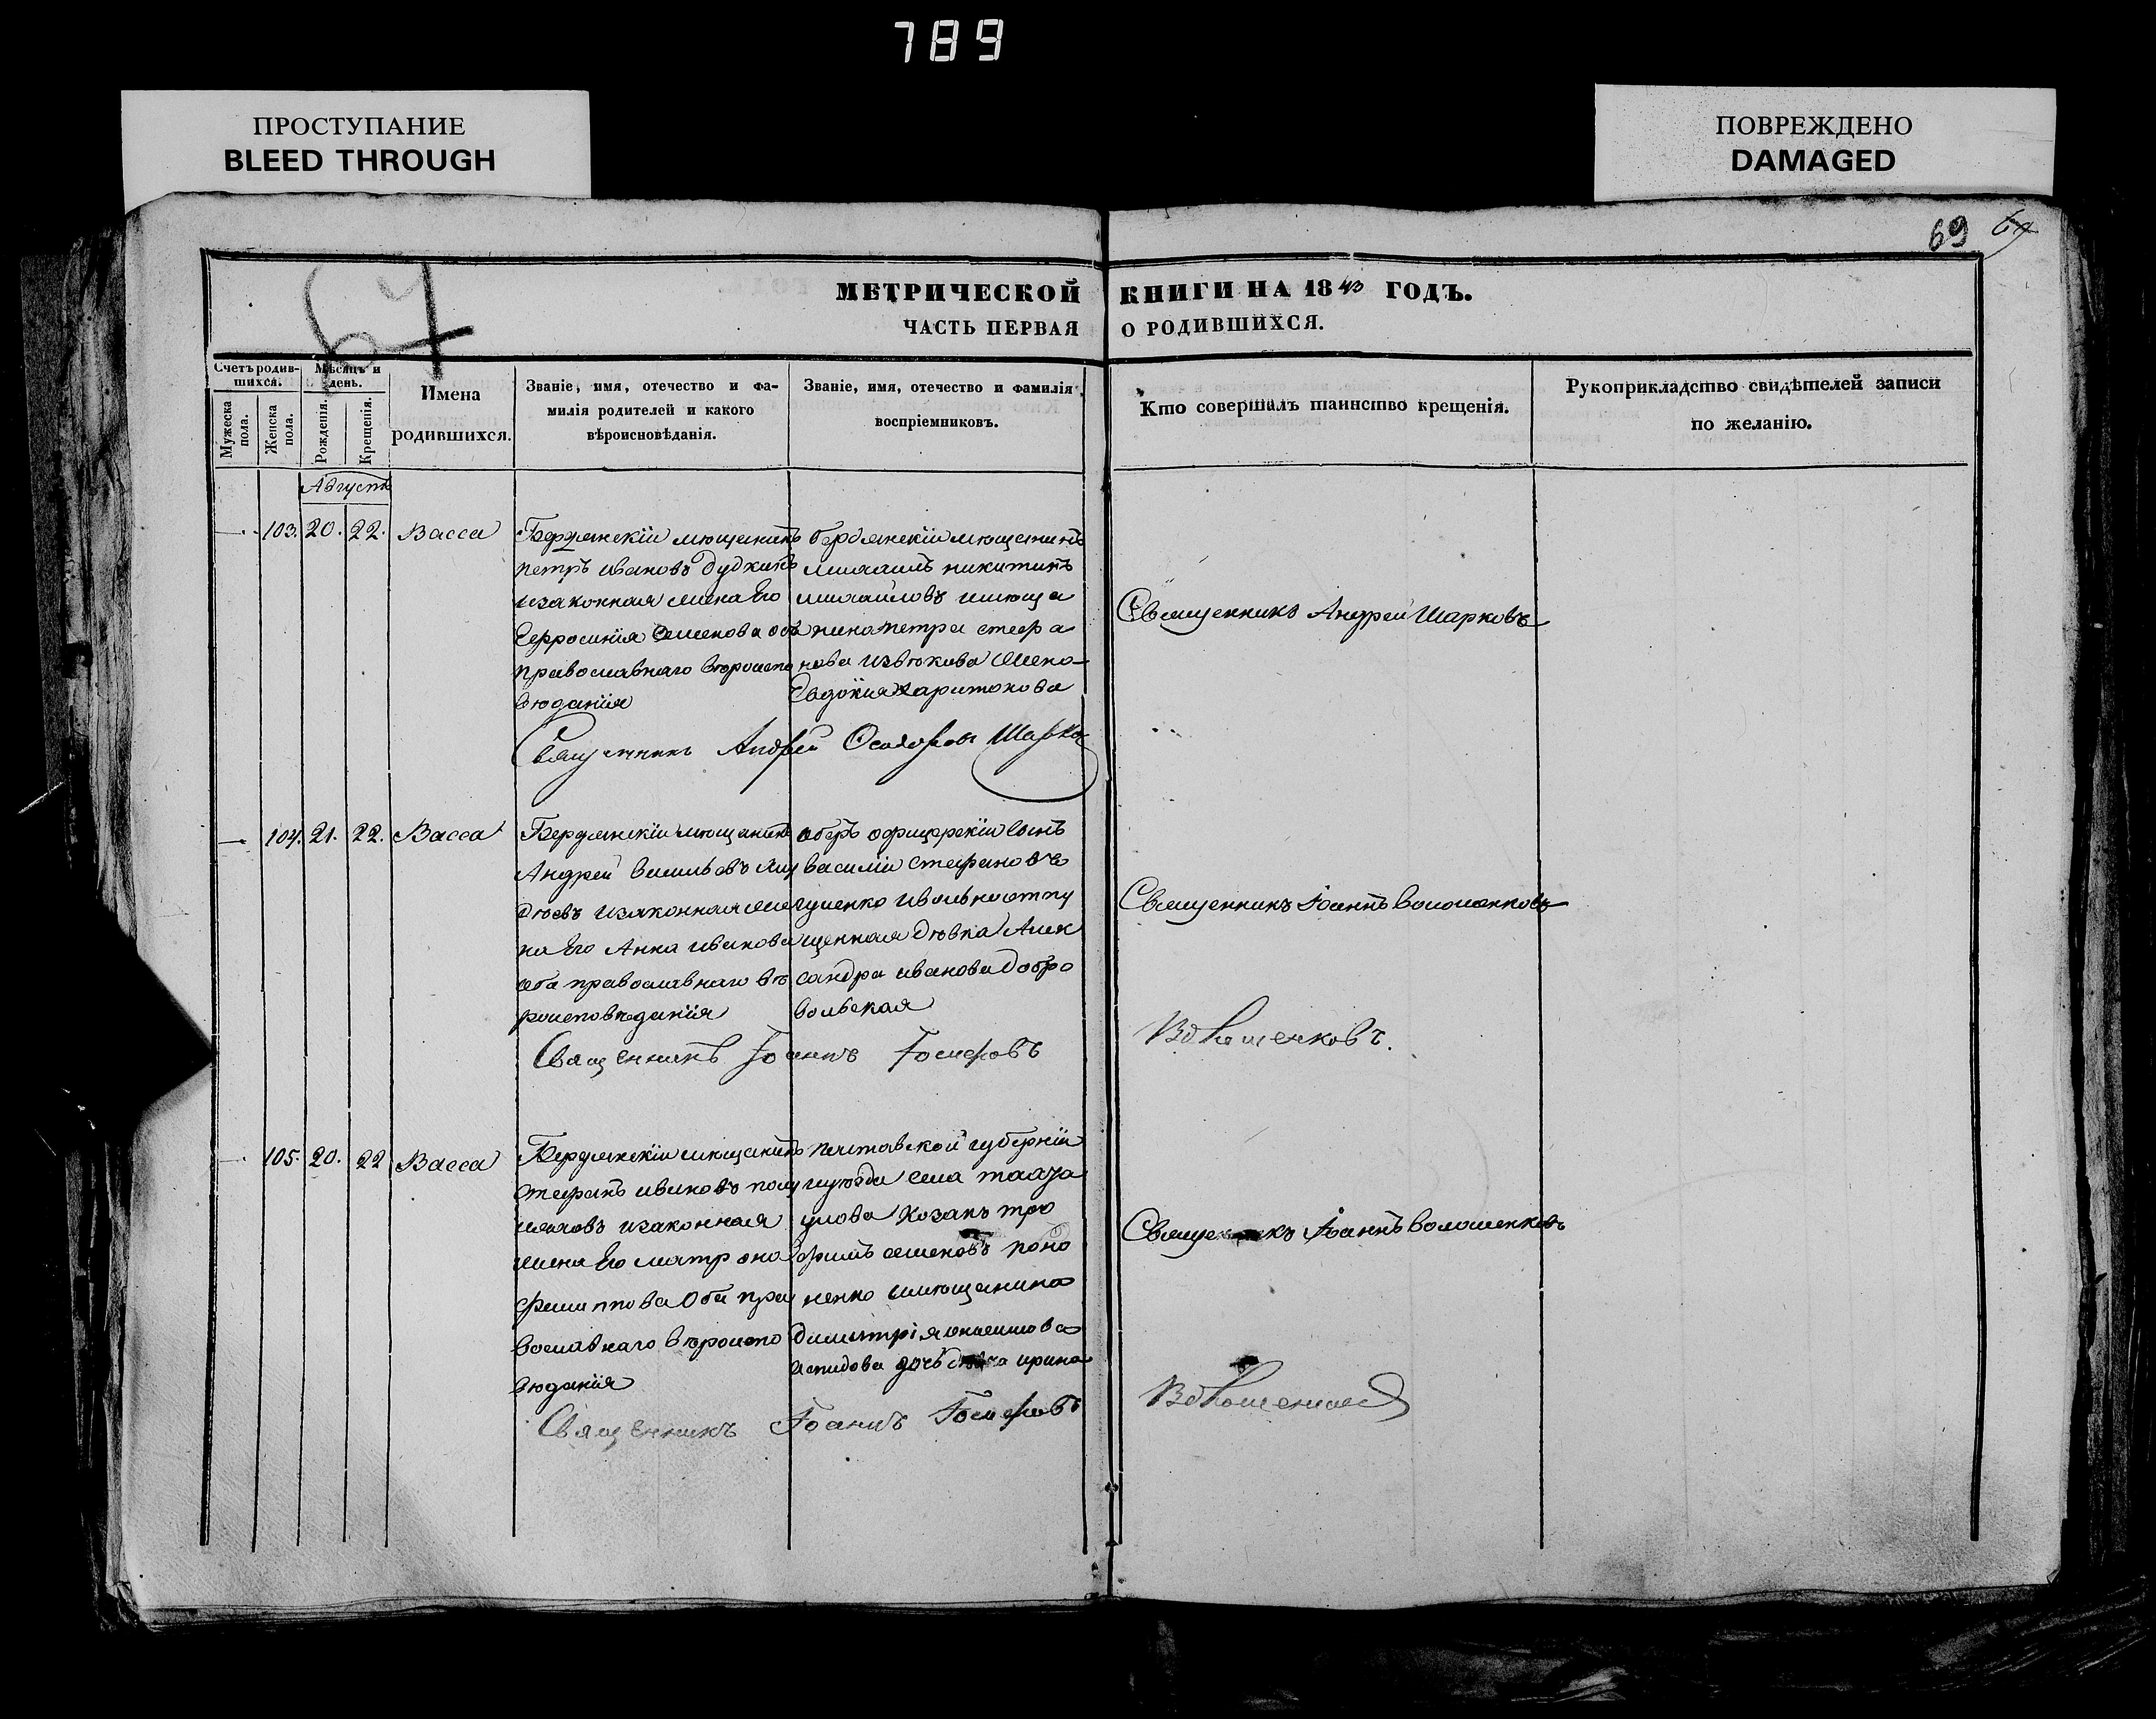 789
ПРОСТУПАНИЕ
BLEED THROUGH
ПОВРЕЖДЕНО
DAMAGED
69 69
67
МЕТРИЧЕСКОЙ КНИГИ НА 1843 ГОДЪ.
ЧАСТЬ ПЕРВАЯ О РОДИВШИХСЯ.
Счетъ родив-
шихся.
Мужеска
пола.
Женска
пола.
Мѣсяцъ и
день.
Рожденія.
Крещенія.
Имена
родившихся.
Званіе, имя, отечество и фа-
милія родителей и какого
вѣроисновѣданія.
Званіе, имя, отечество и фамилія
воспріемниковъ.
Кто совершалъ таинство крещенія.
Рукоприкладство свидѣтелей записи
по желанію.
Августъ
103. 20. 22. Васса
Бердянскій мѣщанинъ
петръ ивановъ Дудкинъ
изаконная жена Его
Ефросинія Семенова оба
православнаго вѣроиспо
вѣданія
бердянскій мѣщанинъ
михаилъ никитинъ
михайловъ имѣща
нина петра стефа
нова жена
Евдокия харитонова
Священникъ Андрей Шарковъ
Священникъ Андрей
104. 21. 22. Васса
Бердянскій мѣщанинъ
Андрей васильевъ
изаконная же
на Его Анна иванова
оба православнаго вѣ
роисповѣданія
оберъ офицерскій сынъ
василій стефановъ
ивольноотпу
щенная дѣвка Алек
сандра иванова добро
вольская
Священникъ Іоаннъ Волошенковъ
Священникъ Іоаннъ Іосифовъ
Волошенковъ.
105. 20. 22 Васса
Бердянскій мѣщанинъ
стефанъ ивановъ
изаконная
жена Его матрона
филиппова Оба пра
вославнаго вѣроиспо
вѣданія
полтавской губерніи
уѣзда села
козакъ тро
фимъ семеновъ поно
ненко имѣщанина
димитрія
дочь ирина
Священникъ Іоаннъ Волошенковъ
Священникъ Іоаннъ Іосифовъ